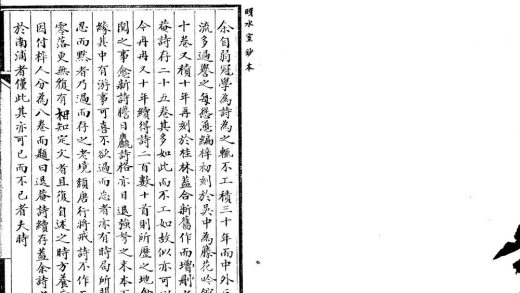 明水室鈔本
余自弱冠學為詩為之輒不工積三十年而中外
流多過譽之每慫恿編梓初刻於吳中為藤花吟
十卷又積十年再刻於桂林蓋合新舊作而增刪
菴詩存二十五卷其多如此而不工如故似亦可以
今冉冉又十年續得詩二百數十首則所歷之地
閱之事愈新詩膽日麤詩格亦日退強弩之末本
緣其中有游事可喜不欲過而忘者亦有時局所
忍而黙者乃過而存之老境頹唐行將戒詩不作
零落更無復有相知定文者且復自述之時方養
因付梓人分為八卷而題曰退菴詩續存蓋余詩
於南浦者僅此其亦可已而不已者夫時